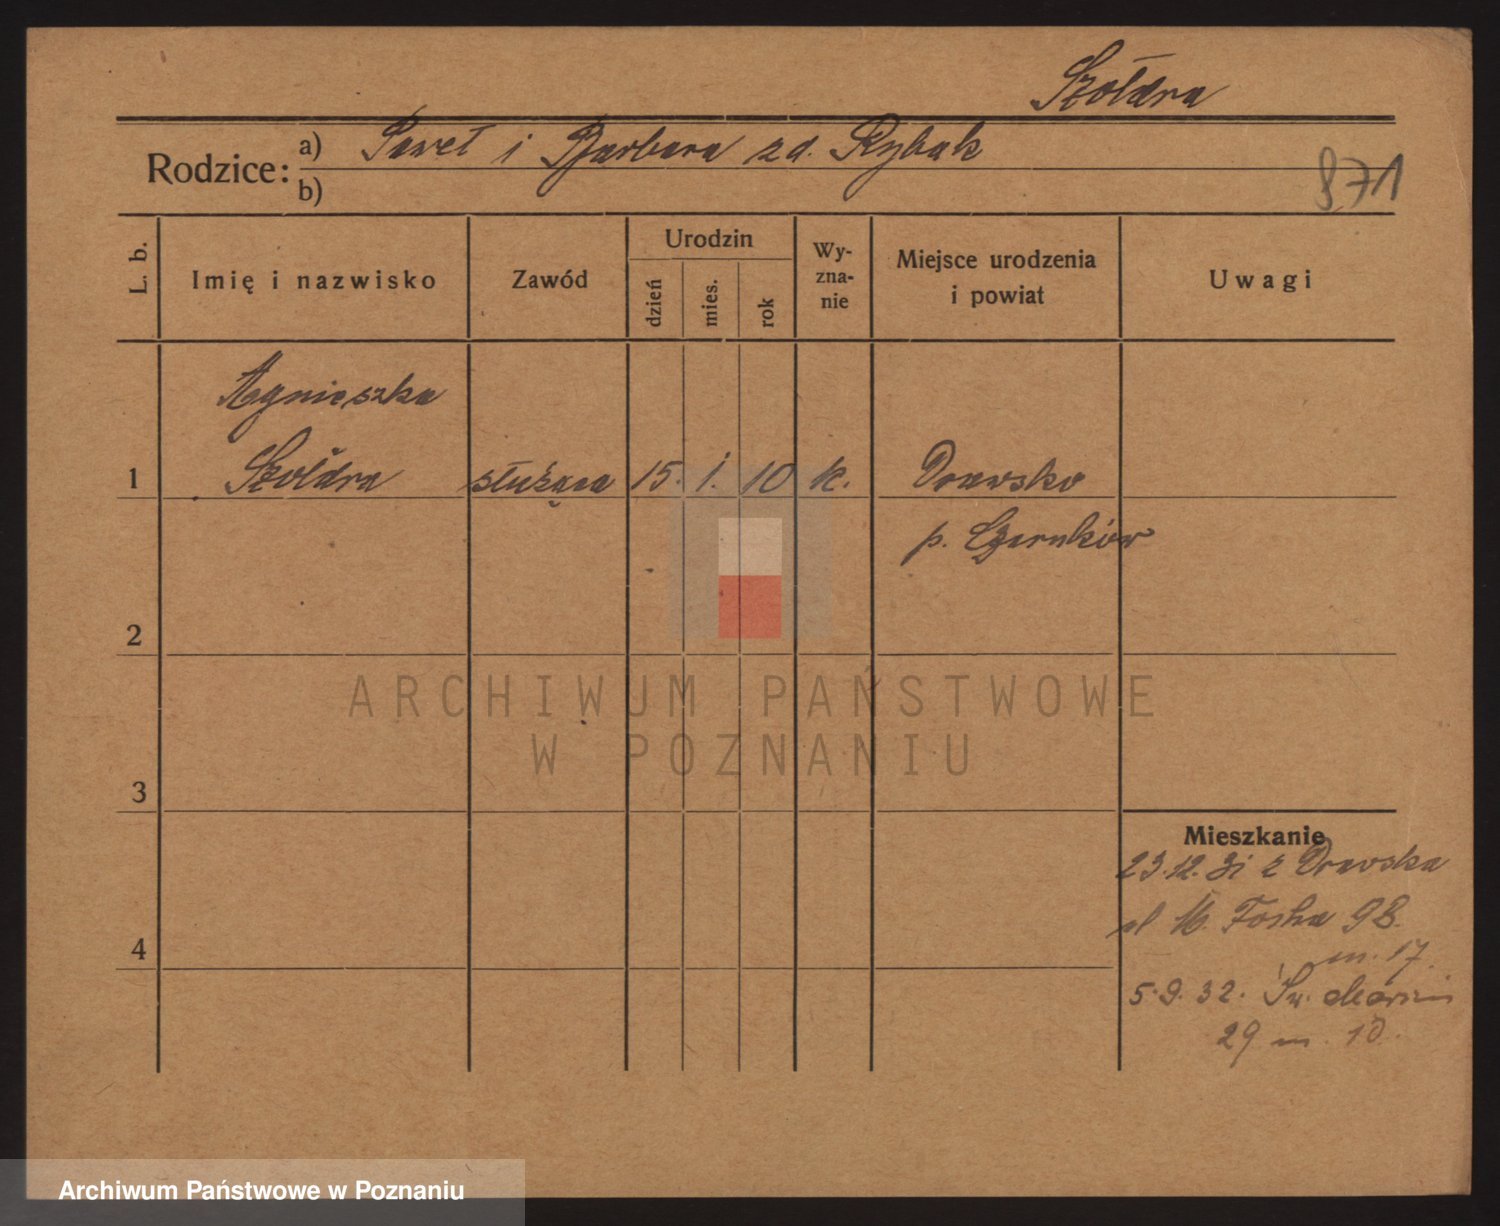 Szołdra
Rodzice: a) Paweł i Barbara zd. Rybak
b)
871
L. b. Imię i nazwisko Zawód Urodzin dzień mies. rok Wy-zna-nie Miejsce urodzenia i powiat Uwagi
Agnieszka
1 Szołdra służąca 15. 1. 10 k. Drawsko
p. Czarnków
2
ARCHIWUM PAŃSTWOWE
W POZNANIU
3
Mieszkanie
23.12.31 z Drawska
ul M. Focha 98
4
m. 17.
5.9.32. Św. Marcin
29 m. 10.
Archiwum Państwowe w Poznaniu